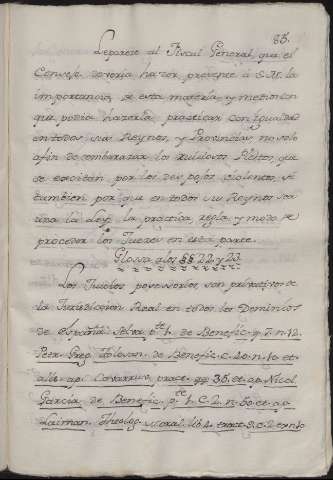 85.
Le parece al Fiscal General, que el
Consejo devería hazer presente à S.M. la
importancia, de esta materia, y methodo en
que podia hazerla practicar con igualdad
en todos sus Reynos, y Provincias no solo
afin de embarazar los ruidosos Pleitos, que
se excitan por los despojos violentos, si
tambien por que en todos sus Reynos sea
una la ley, la practica, regla, y modo de
proceder los Juezes en esta parte.
Glossa a los §§ 22. y 23.
Los Juicios possessorios son privativos de
la Jurisdiccion Real en todos los Dominios
de España. Selva pte. 1. de Benefic. q. 7. n. 12.
Petr. Greg. Tolosan. de Benefic. C. 20. n. 10. et
alii ap. Covarruv. pract. qq. 35. et ap. Nicol.
Garcia de Benefic. pte. 1. C. 2. n. 50. et ap.
Laiman. Theolog. Moral. lib. 4. tract. 2. C. 2. n. 10